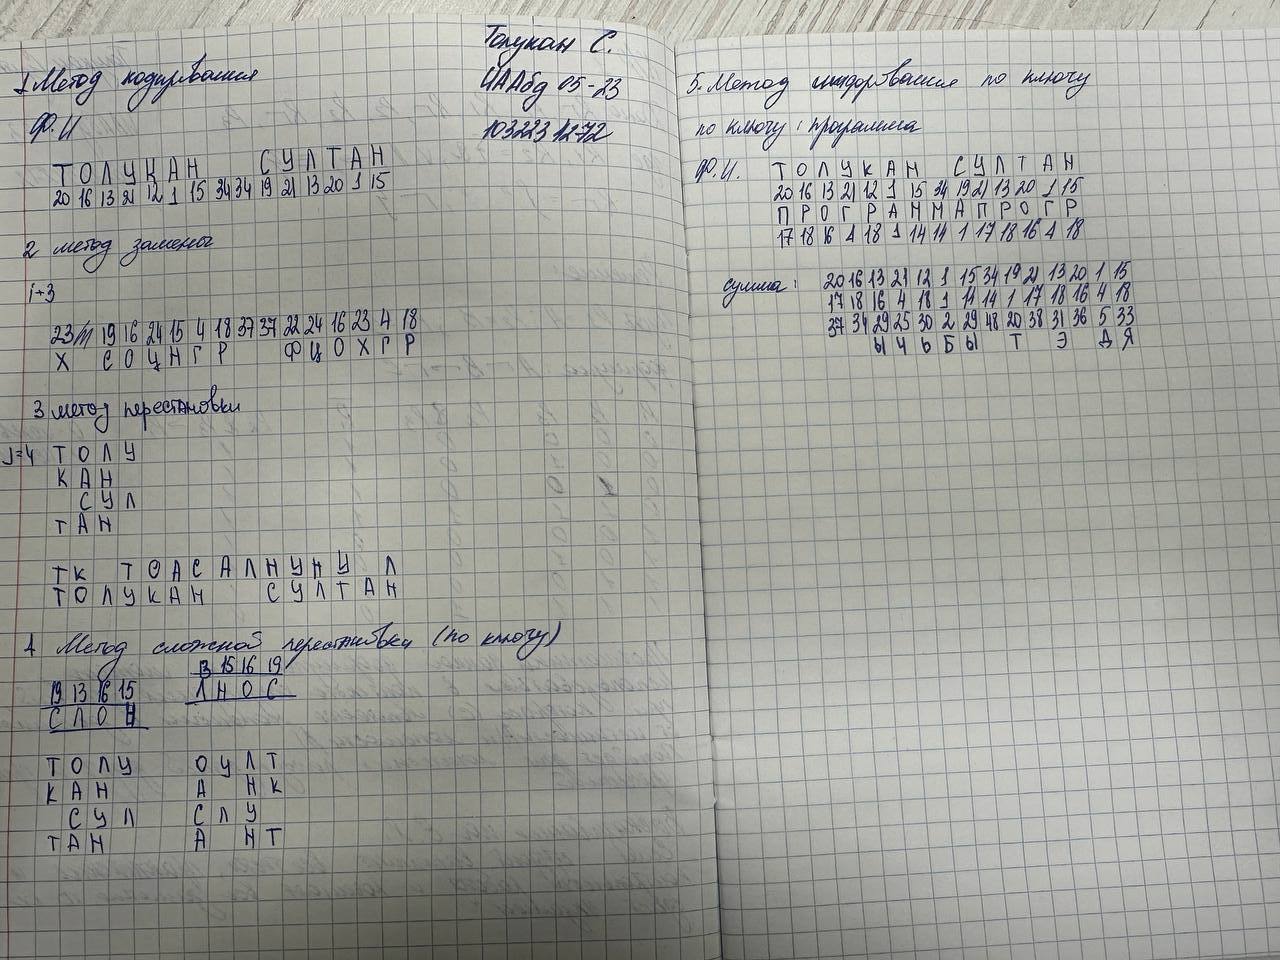 Толукан С.
1 Метод кодирования
ИААбд 05-23
Ф.И
1032231272
Т О Л У К А Н С У Л Т А Н
20 16 13 21 12 1 15 34 34 19 21 13 20 1 15
2 метод замены
i+3
23 19 16 24 15 4 18 37 37 22 24 16 23 4 18
Х С О Ц Н Г Р Ф Ц О Х Г Р
3 метод перестановки
J=4 Т О Л У
К А Н
С У Л
Т А Н
Т К Т О А С А Л Н У Н У Л
Т О Л У К А Н С У Л Т А Н
4 Метод сложной перестановки (по ключу)
13 15 16 19
19 13 16 15
Л Н О С
С Л О Н
Т О Л У О У Л Т
К А Н А Н К
С У Л С Л У
Т А Н А Н Т
5. Метод шифрования по ключу
по ключу: программа
Ф.И. Т О Л У К А Н С У Л Т А Н
20 16 13 21 12 1 15 34 19 21 13 20 1 15
П Р О Г Р А М М А П Р О Г Р
17 18 16 4 18 1 14 14 1 17 18 16 4 18
сумма: 20 16 13 21 12 1 15 34 19 21 13 20 1 15
17 18 16 4 18 1 14 14 1 17 18 16 4 18
37 34 29 25 30 2 29 48 20 38 31 36 5 33
Ы Ч Ь Б Ы Т Э Д Я